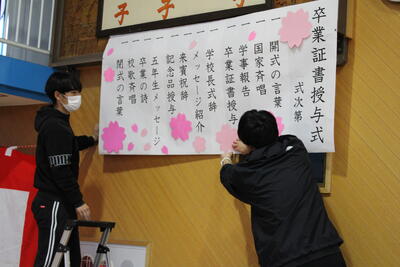 子
子
卒業証書授与式
式次第
開式の言葉
国家斉唱
学事報告
卒業証書授与
学校長式辞
メッセージ紹介
来賓祝辞
記念品授与
五年生メッセージ
卒業の詩
校歌斉唱
閉式の言葉